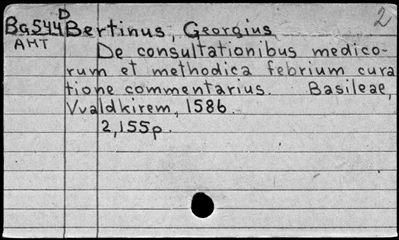 D 2
Ba544 Bertinus, Georgius
AHT De consultationibus medico-
rum et methodica febrium cura
tione commentarius. Basileae,
Vvaldkirem, 1586.
2,155p.